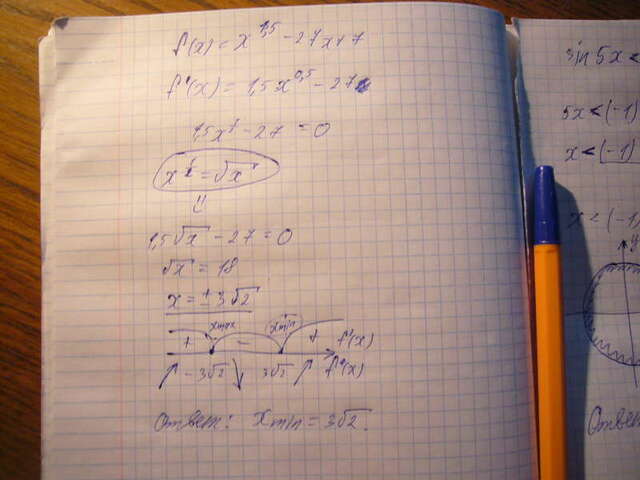 f(x) = x^1,5 - 27x + 7
f'(x) = 1,5x^0,5 - 27
1,5x - 27 = 0
x = √x
1,5√x - 27 = 0
√x = 18
x = ± 3√2
xmax xmin
+ - + f'(x)
- 3√2 3√2 f(x)
Ответ: xmin = 3√2.
sin 5x <
5x < (-1)
x < (-1)
x = (-1)
y
Ответ